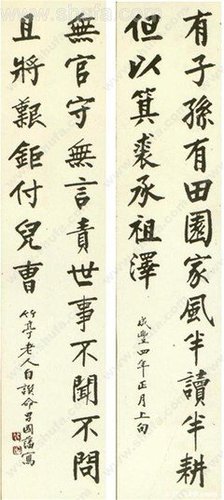 有子孫有田園家風半讀半耕
但以箕裘承祖澤
咸豐四年正月上旬
無官守無言責世事不聞不問
且將艱鉅付兒曹
竹亭老人自撰命男國藩寫